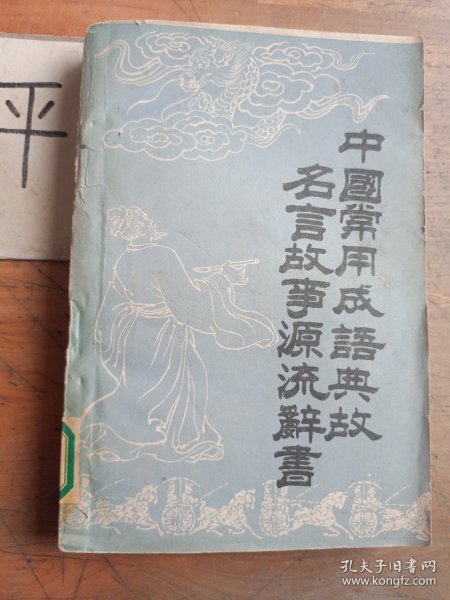 中國常用成語典故
名言故事源流辭書
平
孔夫子旧书网
www.kongfz.com